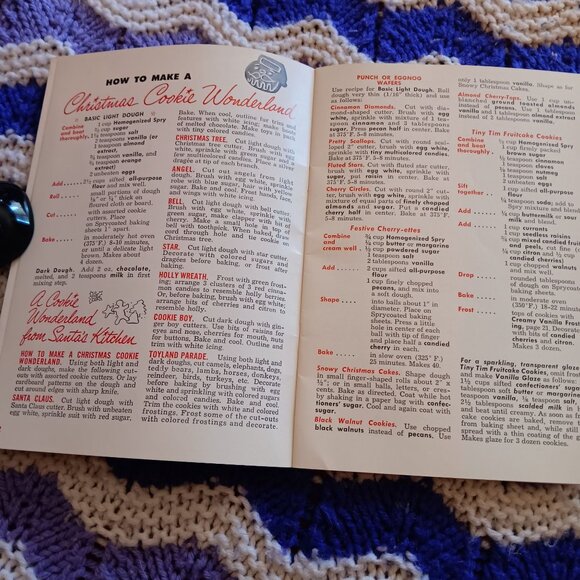 HOW TO MAKE A
Christmas Cookie Wonderland
BASIC LIGHT DOUGH
Combine
and beat
thoroughly
1 cup Homogenized Spry
cup sugar
teaspoons salt
2 teaspoons vanilla (or
1 teaspoon almond
extract)
teaspoon vanilla, and
teaspoon orange
extract)
2 unbeaten eggs
Add
cups sifted all-purpose
flour and mix well.
Roll
small portions of dough
to thick on
floured cloth or board,
Cut
with assorted cookie
cutters. Place on
Sprycoated baking
sheets 1" apart.
Bake
in moderately hot oven
(375°F.) 8-10 minutes,
or until a delicate light
brown. Makes about
dozen.
Dark Dough. Add 2 oz. chocolate,
melted, and 2 teaspoons milk in first
mixing step.
A Cookie
Wonderland
from Santa's Kitchen
HOW TO MAKE A CHRISTMAS COOKIE
WONDERLAND. Using both light and
dark doughs, make the following cut-
outs with assorted cookie cutters. Or lay
cardboard patterns on the dough and
cut around edges with sharp knife.
SANTA CLAUS. Cut light dough with
Santa Claus cutter. Brush with unbeaten
egg white, sprinkle suit with red sugar.
Bake. When cool, outline for trim and
features with white icing; make boots
of melted chocolate. Make toys in pack
with colored icing.
CHRISTMAS TREE. Cut light dough with
Christmas tree cutter. Brush with egg
white, sprinkle with green sugar and a
few multicolored candies. Place a silver
dragée at tip of each branch. Bake.
ANGEL. Cut out angels from light
dough. Brush with egg white, sprinkle
robe with blue sugar, hair with silver
and wings with
sugar. Bake and cool. Frost hands, face,
and wings with white icing.
BELL. Cut light dough with bell cutter.
Brush with egg white, sprinkle with
green sugar, make clapper with bit of
cherry. Make hole in top of bell
with toothpick. When baked, draw
cord through hole and tie cookie on
Christmas tree.
STAR. Cut light dough with star cutter.
Decorate with colored sugars and
dragées before baking, or frost after
baking.
HOLLY WREATH. Frost with green frost-
ing; arrange 3 clusters of 3 red cinna-
mon candies to resemble holly berries.
Or, before baking, brush with egg white,
arrange bits of cherries and citron to
resemble holly.
COOKIE BOY. Cut dark dough with gin-
ger boy cutters. Use bits of raisins for
eyes and nose, cherries for mouth, nuts
for buttons. Bake and cool. Outline
trim with white icing.
TOYLAND PARADE. Using both light and
dark doughs, cut camels, elephants, dogs,
teddy bears, lambs, horses, donkeys,
reindeer, birds, turkeys, etc. Decorate
before baking by brushing with egg
white and sprinkling with colored sugars
and colored candies. Bake and cool.
Trim the cookies with white and colored
frostings. Frost some of the cut-outs
with colored frostings and decorate.
PUNCH OR EGGNOG
WAFERS
Use recipe for Basic Light Dough. Roll
dough very thin (1/16" thick) and use
as follows:
Cinnamon Diamonds. Cut with dia-
mond-shaped cutter. Brush with egg
white, sprinkle with mixture of 1 tea-
spoon cinnamon and 2 tablespoons
sugar. Press pecan half in center. Bake
at 375°F. 5-8 minutes.
Pretty Scallops. Cut with round scal-
loped 2" cutter, brush with egg white,
sprinkle with tiny multicolored candies.
Bake at 375°F. 5-8 minutes.
Fluted Stars. Cut with fluted star cutter,
brush with egg white, sprinkle with
sugar, put raisin in center. Bake at
375°F. 5-8 minutes.
Cherry Circles. Cut with round 2" cut-
ter, brush with egg white, sprinkle with
mixture of equal parts of finely chopped
almonds and sugar. Put a candied
cherry in center. Bake at 375°F. 5-8
minutes.
Festive Cherry-ettes
Combine
and
cream well
3/4 cup Homogenized Spry
1/4 cup butter or margarine
1/2 cup powdered sugar
teaspoon salt
2 tablespoons vanilla
Add
2 cups sifted all-purpose
flour
1 cup finely chopped
pecans, and mix into
a soft dough.
Shape
into balls about 1" in
diameter. Place on
Sprycoated baking
sheets. Press a little
hole in center of each
ball with tip of finger
and place half a candied
cherry in each.
Bake
in slow oven (325°F.)
25 minutes. Makes 40.
Snowy Christmas Cakes. Shape dough
in small finger-shaped rolls about 2" x
½"; or in small balls, letters, or cres-
cents. Bake as directed. Coat while hot
by shaking in a paper bag with confec-
tioners' sugar. Cool and again coat with
sugar.
Black Walnut Cookies. Use chopped
black walnuts instead of pecans. Use
only 1 tablespoon vanilla. Shape as for
Snowy Christmas Cakes.
Almond Cherry-Tops. Use 1 cup un-
blanched ground toasted almonds
instead of pecans. Use only 1 tablespoon
vanilla.
Tiny Tim Fruitcake Cookies
Combine
and beat
thoroughly
cup Homogenized Spry
1 cup firmly packed
brown sugar
teaspoon cinnamon
teaspoon cloves
teaspoon nutmeg
1 teaspoon salt
1 teaspoon vanilla
2 eggs
Sift
together
cups sifted all-purpose
flour
teaspoon soda; add to
Spry mixture and mix.
Add
cup buttermilk or sour
milk and blend.
Add
1 cup currants
1 cup seedless raisins
cup mixed candied fruits
and peels, cut fine
cup citron and candied
cherries (cut)
1 cup chopped walnuts
and mix well.
Drop
rounded tablespoons
of dough on Sprycoated
baking sheets.
Bake
in moderate oven
(350°F.) 18-22 minutes.
Frost
tops of cookies with
Creamy Vanilla Frost-
ing, page 21. Decorate
with bits of candied
cherries and citron.
Makes 3 dozen.
For a sparkling, transparent glaze on
Tiny Tim Fruitcake Cookies, omit frosting
and make Vanilla Glaze as follows:
1½ cups sifted confectioners' sugar,
tablespoon soft butter or margarine,
teaspoon vanilla, ⅛ teaspoon salt,
2½ tablespoons scalded milk in bowl
and beat until creamy. As soon as fruit-
cake cookies are baked, remove them
from baking sheet and, while still hot,
spread with a thin coating of the glaze.
Makes glaze for 3 dozen cookies.